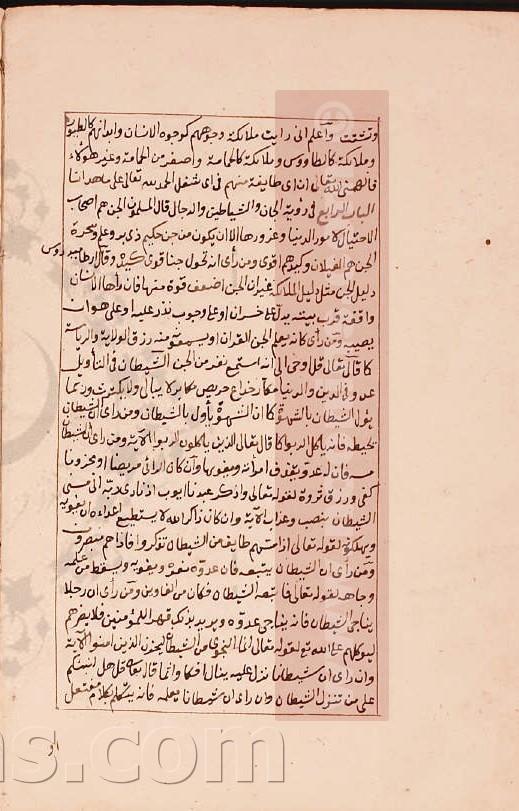 وتشتت واعلم انى رايت ملائكة وجوههم كوجوه الانسان وابدانهم كالطيور
وملائكة كالطاووس وملائكة كالحمامة واصغر من الحمامة وغير هؤلاء
فالهمنى الله تعالى ان اى طايفة منهم فى اى شغل الحمد لله تعالى على ما هدانا
الباب الرابع فى رؤية الجان والشياطين والدجال قال المسلمون الجن هم اصحاب
الاحتيال لامور الدنيا وغرورها الا ان يكون من جن حكيم ذى بر وعلم وسحرة
الجن هم الغيلان وكيدهم اقوى ومن راى انه تحول جنا قوى كيده وقال ارطاميدروس
دليل الجن مثل دليل الملائكة غير ان الجن اضعف قوة منها فان رآها الانسان
واقفة قرب بيته يدل على خسران او على وجوب نذر عليه او على هوان
يصيبه ومن راى كانه يعلم الجن القران او يسمعونه منه رزق الولاية والرياسة
كما قال تعالى قل اوحى الى انه استمع نفر من الجن الشيطان فى التأويل
عدو فى الدين والدنيا مكار خداع حريص مكابر لا يبالى ولا يكترث وربما
يؤل الشيطان بالشهوة كما ان الشهوة يأول بالشيطان ومن راى الشيطان
تخبطه فانه ياكل الربوا كما قال تعالى الذين ياكلون الربوا الآية ومن راى الشيطان
مسه فان له عدو يقذف امرأته ويغويها وان كان الرائى مريضا او محزونا
كفى ورزق ثروة لقوله تعالى واذكر عبدنا ايوب اذ نادى ربه انى مسنى
الشيطان بنصب وعذاب الآية وان كان ذاكرا لله لا يستطيع اعداءه ان يغويه
ويهلكه لقوله تعالى اذا مسهم طايف من الشيطان تذكروا فاذا هم مبصرون
ومن راى ان الشيطان يتبعه فان عدوه يغره ويغويه ويسقط من علمه
وجاهه لقوله تعالى فاتبعه الشيطان فكان من الغاوين ومن راى ان رجلا
يناجى الشيطان فانه يناجى عدوه ويريد بذلك قهر المؤمنين فلا يضرهم
ليوكلهم على الله تع لقوله تعالى انما النجوى من الشيطان ليحزن الذين امنوا الآية
وان راى ان شيطانا نزل عليه ينال افكا واثما قال تعالى قل هل انبئكم
على من تنزل الشيطان وان راى ان شيطانا يعلمه فانه يتكلم بكلام مفتعل
ns.com